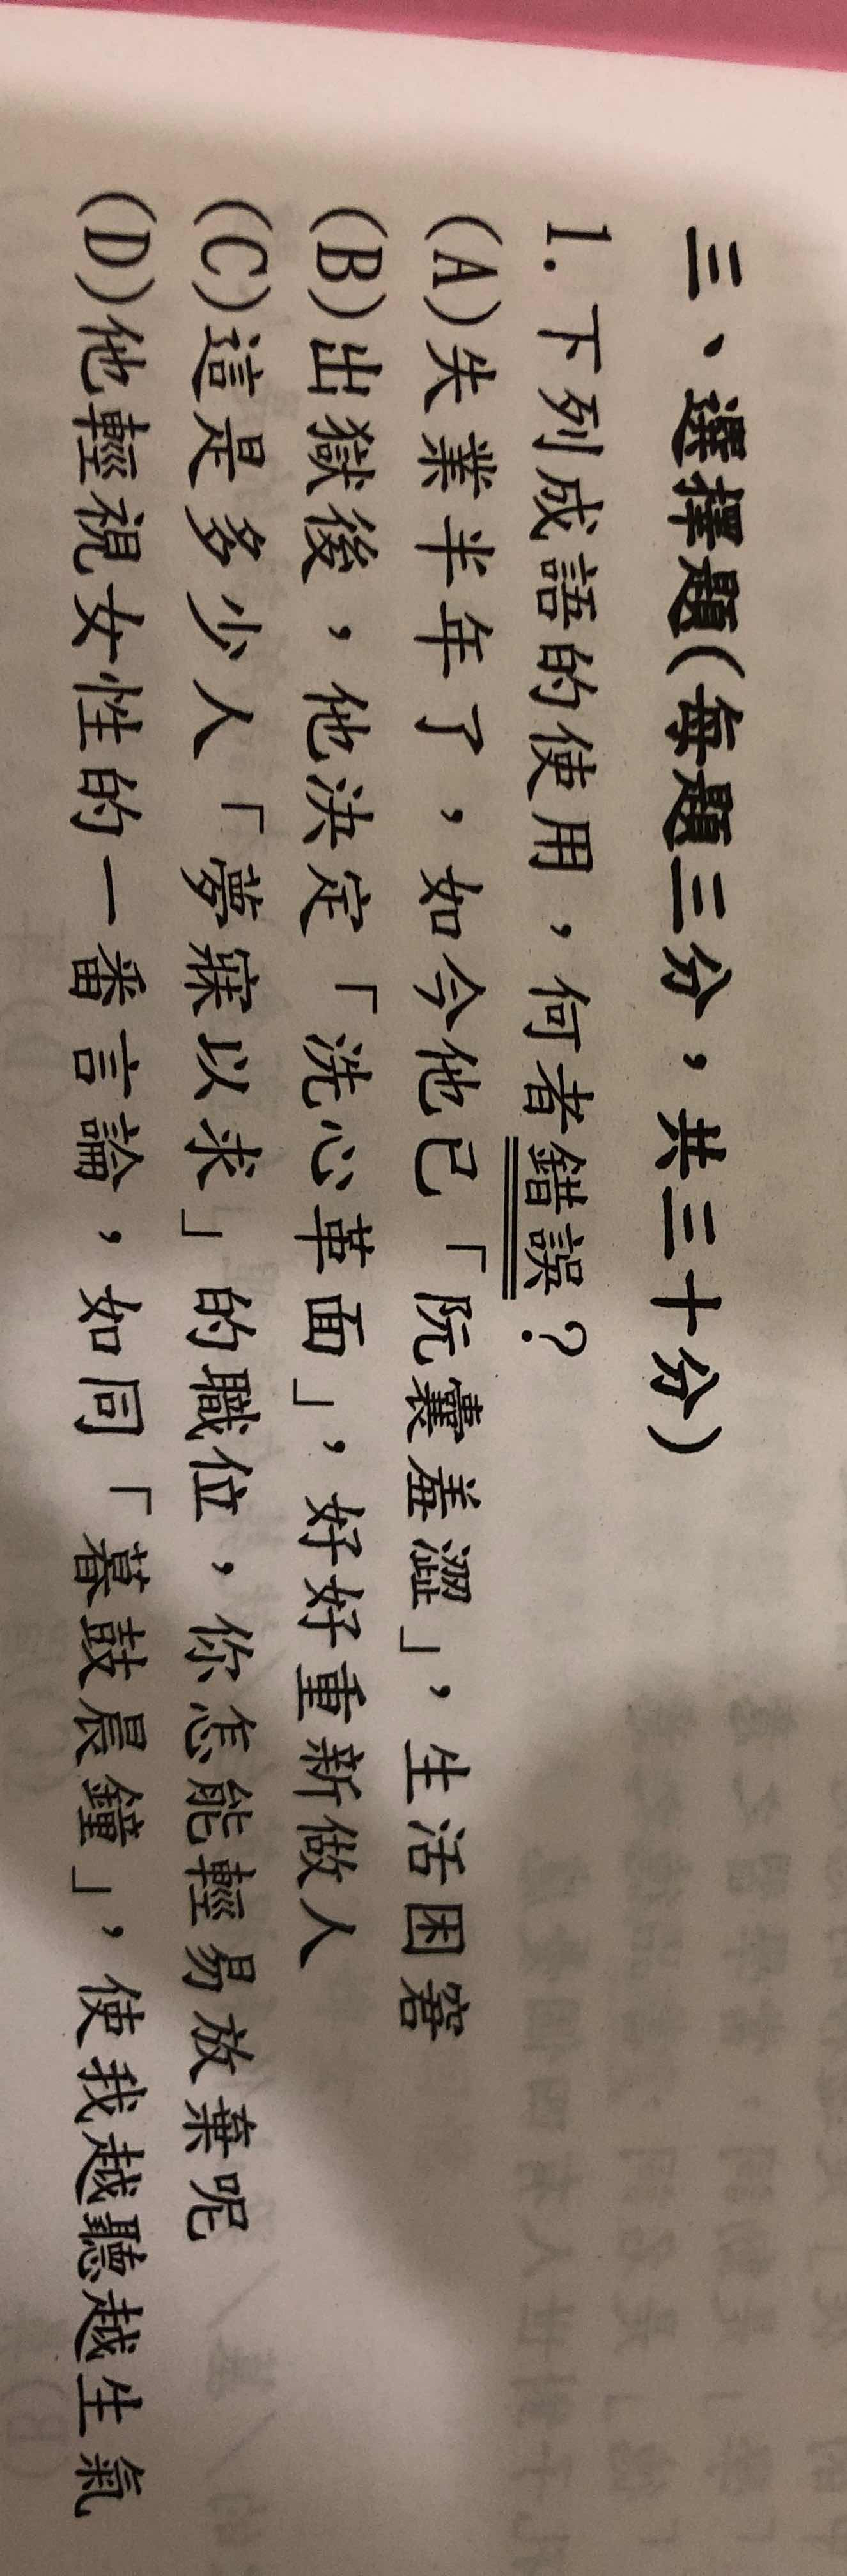 三、選擇題(每題三分，共三十分)
1.下列成語的使用，何者錯誤？
(A)失業半年了，如今他已「阮囊羞澀」，生活困窘
(B)出獄後，他決定「洗心革面」，好好重新做人
(C)這是多少人「夢寐以求」的職位，你怎能輕易放棄呢
(D)他輕視女性的一番言論，如同「暮鼓晨鐘」，使我越聽越生氣